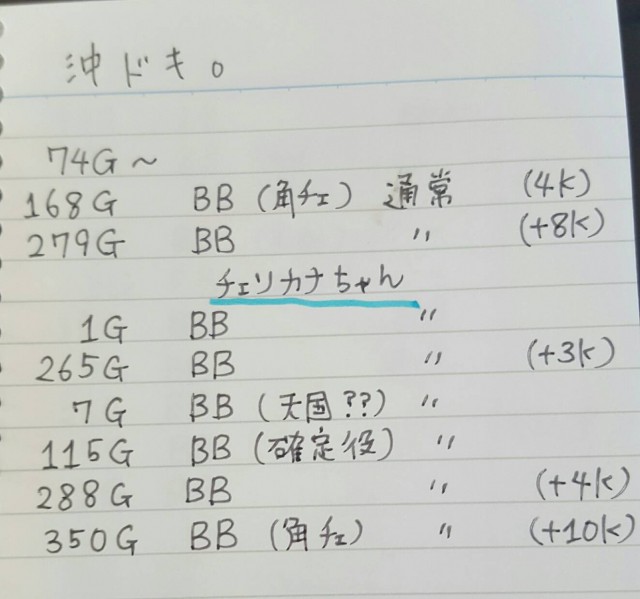 沖ドキ。
74G~
168G BB (角チェ) 通常 (4k)
279G BB 〃 (+8k)
チェリカナちゃん
1G BB 〃
265G BB 〃 (+3k)
7G BB (天国??) 〃
115G BB (確定役) 〃
288G BB 〃 (+4k)
350G BB (角チェ) 〃 (+10k)